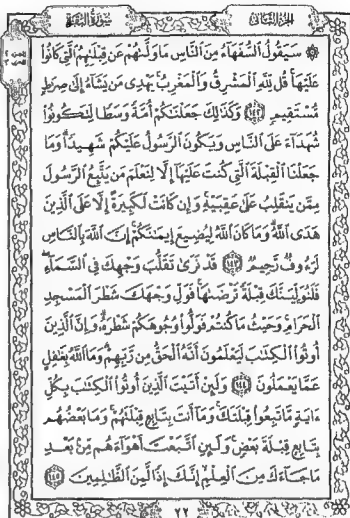 الجزء الثاني سورة البقرة
۞ سَيَقُولُ ٱلسُّفَهَآءُ مِنَ ٱلنَّاسِ مَا وَلَّىٰهُمْ عَن قِبْلَتِهِمُ ٱلَّتِي كَانُوا۟
عَلَيْهَا ۚ قُل لِّلَّهِ ٱلْمَشْرِقُ وَٱلْمَغْرِبُ ۚ يَهْدِى مَن يَشَآءُ إِلَىٰ صِرَٰطٍ
مُّسْتَقِيمٍ ﴿١٤٢﴾ وَكَذَٰلِكَ جَعَلْنَٰكُمْ أُمَّةً وَسَطًا لِّتَكُونُوا۟
شُهَدَآءَ عَلَى ٱلنَّاسِ وَيَكُونَ ٱلرَّسُولُ عَلَيْكُمْ شَهِيدًا ۗ وَمَا
جَعَلْنَا ٱلْقِبْلَةَ ٱلَّتِي كُنتَ عَلَيْهَآ إِلَّا لِنَعْلَمَ مَن يَتَّبِعُ ٱلرَّسُولَ
مِمَّن يَنقَلِبُ عَلَىٰ عَقِبَيْهِ ۚ وَإِن كَانَتْ لَكَبِيرَةً إِلَّا عَلَى ٱلَّذِينَ
هَدَى ٱللَّهُ ۗ وَمَا كَانَ ٱللَّهُ لِيُضِيعَ إِيمَٰنَكُمْ ۚ إِنَّ ٱللَّهَ بِٱلنَّاسِ
لَرَءُوفٌ رَّحِيمٌ ﴿١٤٣﴾ قَدْ نَرَىٰ تَقَلُّبَ وَجْهِكَ فِي ٱلسَّمَآءِ ۖ
فَلَنُوَلِّيَنَّكَ قِبْلَةً تَرْضَىٰهَا ۚ فَوَلِّ وَجْهَكَ شَطْرَ ٱلْمَسْجِدِ
ٱلْحَرَامِ ۚ وَحَيْثُ مَا كُنتُمْ فَوَلُّوا۟ وُجُوهَكُمْ شَطْرَهُۥ ۗ وَإِنَّ ٱلَّذِينَ
أُوتُوا۟ ٱلْكِتَٰبَ لَيَعْلَمُونَ أَنَّهُ ٱلْحَقُّ مِن رَّبِّهِمْ ۗ وَمَا ٱللَّهُ بِغَٰفِلٍ
عَمَّا يَعْمَلُونَ ﴿١٤٤﴾ وَلَئِنْ أَتَيْتَ ٱلَّذِينَ أُوتُوا۟ ٱلْكِتَٰبَ بِكُلِّ
ءَايَةٍ مَّا تَبِعُوا۟ قِبْلَتَكَ ۚ وَمَآ أَنتَ بِتَابِعٍ قِبْلَتَهُمْ ۚ وَمَا بَعْضُهُم
بِتَابِعٍ قِبْلَةَ بَعْضٍ ۚ وَلَئِنِ ٱتَّبَعْتَ أَهْوَآءَهُم مِّنۢ بَعْدِ
مَا جَآءَكَ مِنَ ٱلْعِلْمِ ۙ إِنَّكَ إِذًا لَّمِنَ ٱلظَّٰلِمِينَ ﴿١٤٥﴾
٢٢